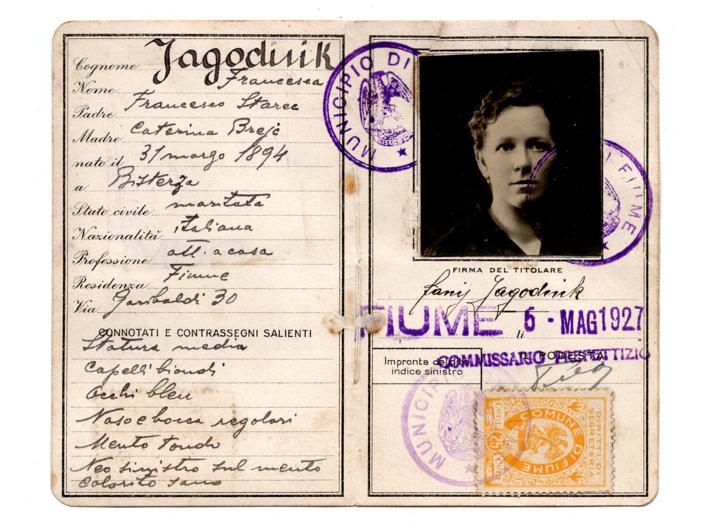 Cognome Jagodnik
Nome Francesca
Padre Francesco Starec
Madre Caterina Brejc
nato il 31 marzo 1894
a Bisterza
Stato civile maritata
Nazionalità italiana
Professione att. a casa
Residenza Fiume
Via Garibaldi 30
CONNOTATI E CONTRASSEGNI SALIENTI
Statura media
Capelli biondi
Occhi bleu
Naso e bocca regolari
Mento tondo
Neo sinistro sul mento
Colorito sano
MUNICIPIO DI
DI FIUME
FIRMA DEL TITOLARE
Fani Jagodnik
FIUME 6 - MAG 1927
IL PODESTÀ
COMMISSARIO PREFETTIZIO
Impronta del dito
indice sinistro
MUNICIPIO
DIRITTI DI
SEGRETERIA
COMUNE
DI FIUME